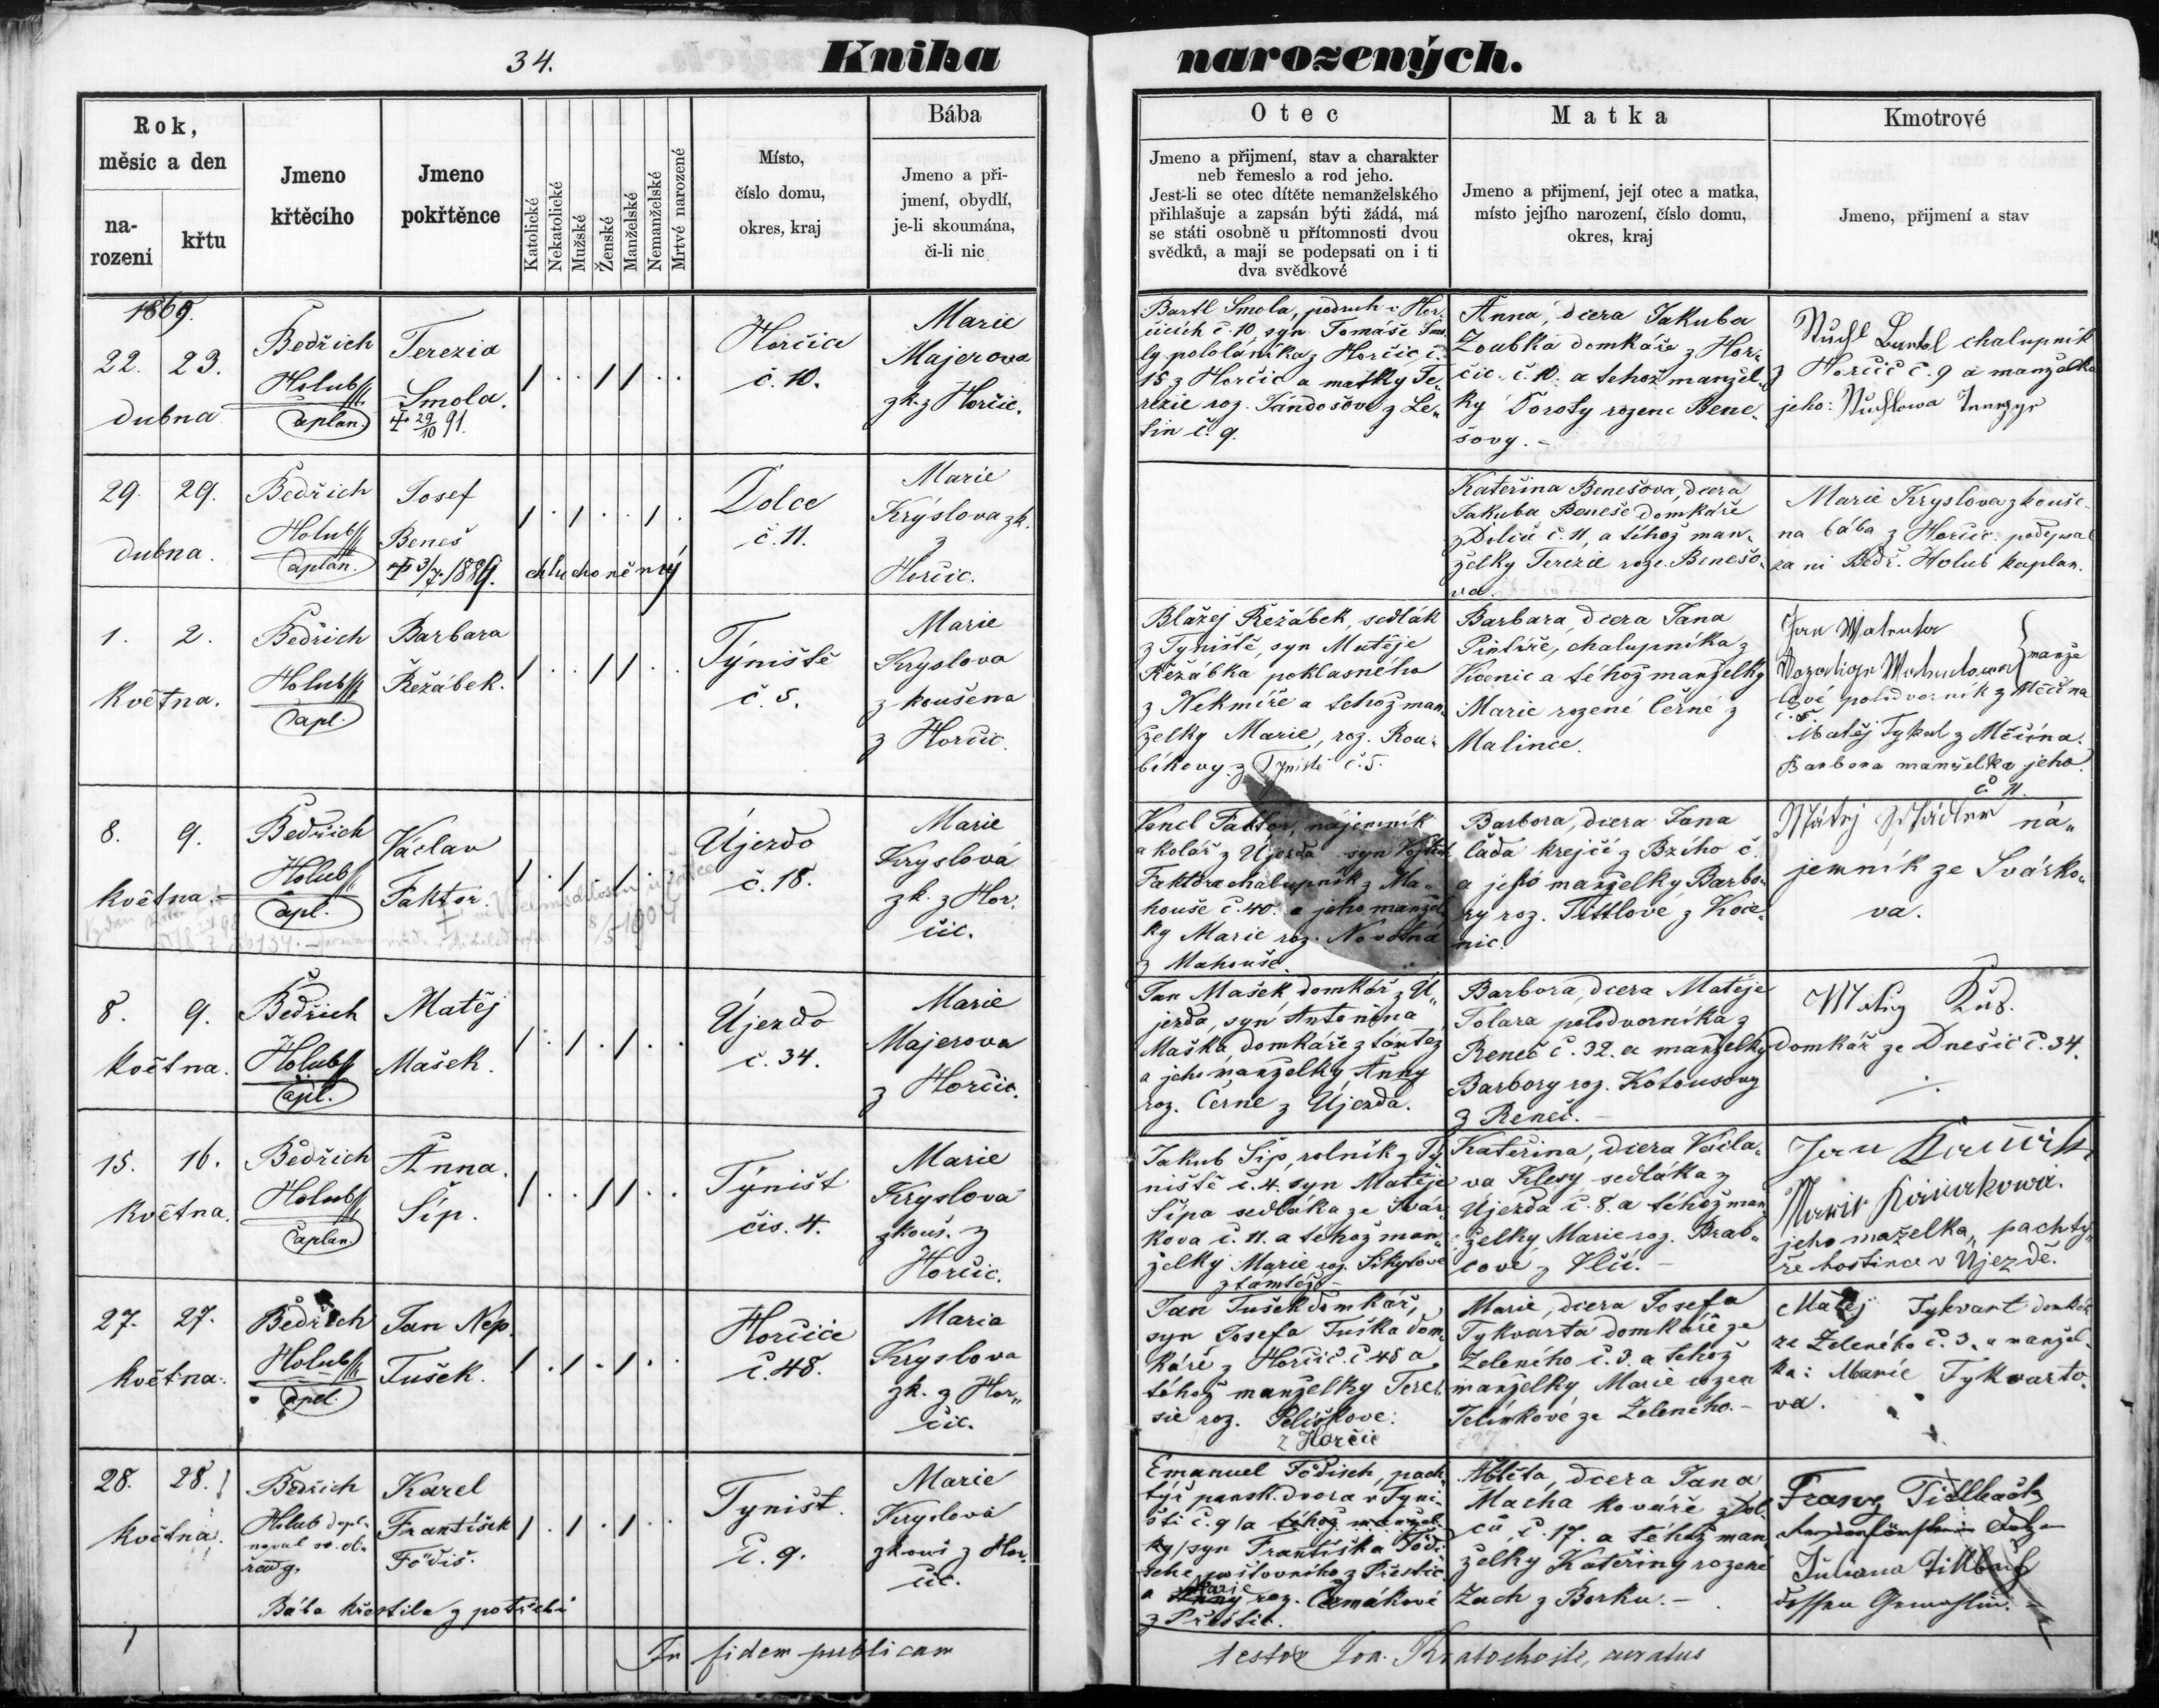 34.
Kniha narozených.
Rok,
měsíc a den
na-
rození
křtu
Jmeno
křtěcího
Jmeno
pokřtěnce
Katolické
Nekatolické
Mužské
Ženské
Manželské
Nemanželské
Mrtvé narozené
Místo,
číslo domu,
okres, kraj
Bába
Jmeno a pří-
jmení, obydlí,
je-li skoumána,
či-li nic
Otec
Jmeno a přijmení, stav a charakter
neb řemeslo a rod jeho.
Jest-li se otec dítěte nemanželského
přihlašuje a zapsán býti žádá, má
se státi osobně u přítomnosti dvou
svědků, a mají se podepsati on i ti
dva svědkové
Matka
Jmeno a přijmení, její otec a matka,
místo jejího narození, číslo domu,
okres, kraj
Kmotrové
Jmeno, přijmení a stav
1869.
22. 23.
dubna
Bedřich
Holub
Caplan.
Terezia
Smola.
29/10 91.
Horčic
č. 10.
Marie
Majerova
zk. z Horčic.
Bartl Smola, podruh v Hor-
čicích č. 10, syn Tomáše Smo-
ly pololáníka z Horčic č.
15 z Horčic a matky Te-
rezie roz. Tándošove z Le-
tin č. 9.
Anna, dcera Jakuba
Zoubka domkáře z Hor-
čic č. 10. a téhož manžel-
ky Doroty rozene Bene-
šovy. -
chalupník
z Horčic č. 9 a manželka
jeho:
29. 29.
dubna.
Bedřich
Holub
Caplan.
Josef
Beneš
3/7. 1889.
chluchoněmý
Dolce
č. 11.
Marie
Krýslova zk.
z
Horčic.
Kateřina Benešova, dcera
Jakuba Beneše domkáře
z Dolců č. 11, a téhož man-
želky Terezie roze. Benešo-
va.
Marie Kryslova zkouše-
na bába z Horčic. podepsal
za ni Bedř. Holub kaplan.
1. 2.
Května.
Bedřich
Holub
Capl.
Barbara
Řežábek.
Týniště
č. 5.
Marie
Kryslova
zkoušena
z Horčic.
Blažej Řežábek, sedlák
z Tyniště, syn Matěje
Řežábka poklasného
z Nekmíře a tehož man-
želky Marie, roz. Rou-
bíkovy. z Tyniště č. 5.
Barbara, dcera Jana
Pintíře, chalupníka z
Kocenic a téhož manželky
Marie rozené Černé z
Malince.
Jan
manže
lové polodvorník z Měčína
č. 5.
Matěj Tykal z Měčína.
Barbora manželka jeho.
č. 11.
8. 9.
května.
Bedřich
Holub
Capl.
Václav
Faktor.
8/5 1904
Újezdo
č. 18.
Marie
Kryslová
zk. z Hor-
čic.
Faktor, nájemník
a kolář z Újezda syn
Faktora chalupník z Ma-
houše č. 40. a jeho manžel-
ky Marie roz. Novotna
z Mahouše.
Barbora, dcera Jana
Lada krejčí z Bzího č.
a jeho manželky Barbo-
ry roz. Tittlové, z Koce-
nic.
Matěj ná-
jemník ze Svárko-
va.
8. 9.
května.
Bedřich
Holub
Capl.
Matěj
Mašek.
Újezdo
č. 34.
Marie
Majerova
z Horčic.
Jan Mašek domkář z Ú-
jezda, syn Antonína
Maška domkáře z támtéž
a jeho manželky Anny
roz. Černe z Újezda.
Barbora, dcera Matěje
Tolara polodvorníka z
Reneč č. 32. a manželky
Barbory roz. Kotousovy
z Reneč. -
domkář ze Dnešic č. 34.
15. 16.
Května.
Bedřich
Holub
Caplan.
Anna.
Šíp.
Týništ
čís. 4.
Marie
Kryslová
zkouš. z
Horčic.
Jakub Šíp, rolník z Tý-
niště č. 4. syn Matěje
Šípa sedláka ze Svár-
kova č. 11. a téhož man-
želky Marie roz.
z támtéž -
Kateřina, dcera Václa-
va Klesy sedláka z
Újezda č. 8. a téhož man-
želky Marie roz. Brab-
cové z Vlčí. -
Jan
jeho maželka, pachtý-
ře hostince v Újezdě.
27. 27.
května.
Bedřich
Holub
Capl.
Jan Nep.
Tušek.
Horčice
č. 48.
Maria
Kryslova
zk. z Hor-
čic.
Jan Tušek domkář,
syn Josefa Tuška dom-
káře z Horčic č. 48 a
téhož manželky Tere-
sie roz. Peliškove:
z Horčic
Marie, dcera Josefa
Tykvarta domkáře ze
Zeleného č. 3. a tehož
manželky Marie rozen
Jelínkové ze Zeleneho. -
Matěj Tykvart domkář
ze Zeleného č. 3. a manžel-
ka: Marie Tykvarto-
va.
28. 28.
května.
Bedřich
Holub dopl-
noval sv. ob-
řady.
Karel
František
Födiš.
Bába křestila z potřebi
Tyništ.
č. 9.
Marie
Kryslová
zkouš z Hor-
čic.
Emanuel Födisch, pach-
týř pansk. dvora v Tyni-
šti č. 9 /a téhož manžel-
ky/ syn Františka Födi-
sche z Přeštic
a Marie roz. Čermákové
z Přeštic.
Alžběta, dcera Jana
Macha kováře z Dol-
ců č. 17. a téhož man-
želky Kateřiny rozené
Zach z Borku. -
Franz
Juliana
dessen Gemahlin. -
In fidem publicam
testor Joa. Kratochvile, curatus